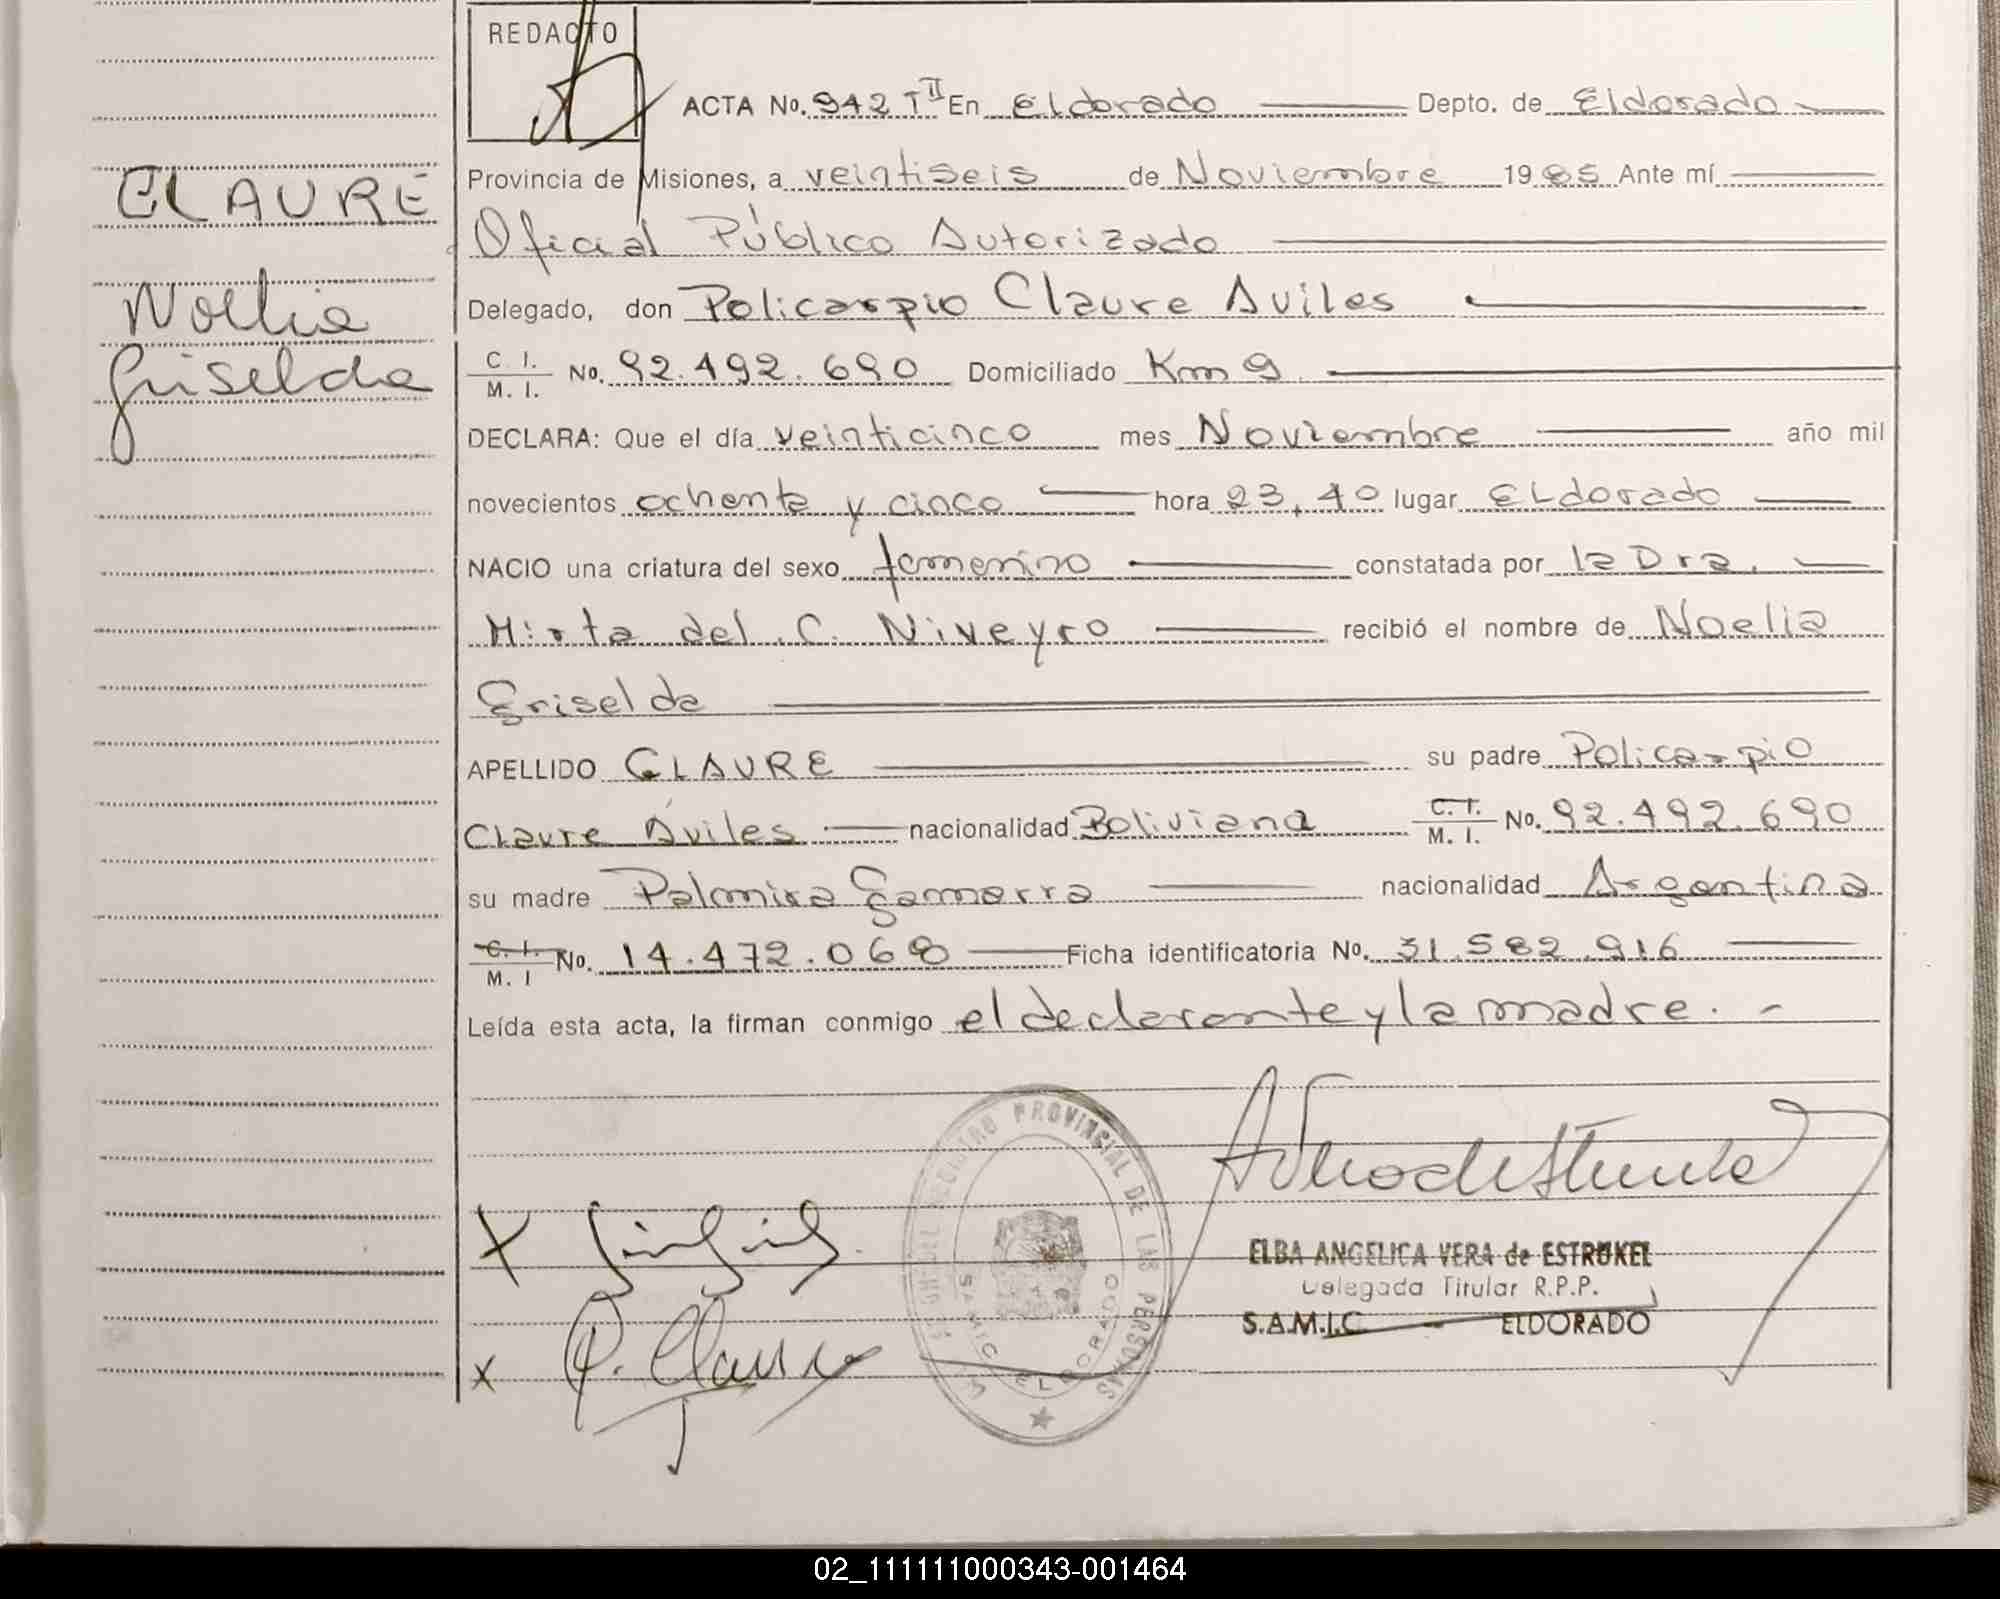 REDACTO
ACTA No. 942 TII En Eldorado Depto. de Eldorado
Provincia de Misiones, a veintiseis de Noviembre 1985 Ante mí
Oficial Público Autorizado
Delegado, don Policarpio Claure Aviles
C. I.
M. I. No. 92.492.690 Domiciliado Km 9
DECLARA: Que el día veinticinco mes Noviembre año mil
novecientos ochenta y cinco hora 23,40 lugar Eldorado
NACIO una criatura del sexo femenino constatada por la Dra.
Mirta del C. Niveyro recibió el nombre de Noelia
Griselda
APELLIDO CLAURE su padre Policarpio
Claure Aviles nacionalidad Boliviana C. I.
M. I. No. 92.492.690
su madre Palmira Gamarra nacionalidad Argentina
C. I.
M. I No. 14.472.068 Ficha identificatoria No. 31.582.916
Leída esta acta, la firman conmigo el declarante y la madre.
CLAURE
Noelia
Griselda
REGISTRO PROVINCIAL DE LAS PERSONAS
SAMIC ELDORADO
X
X P. Claure
ELBA ANGELICA VERA de ESTRUKEL
Delegada Titular R.P.P.
S.A.M.I.C - ELDORADO
02_111111000343-001464